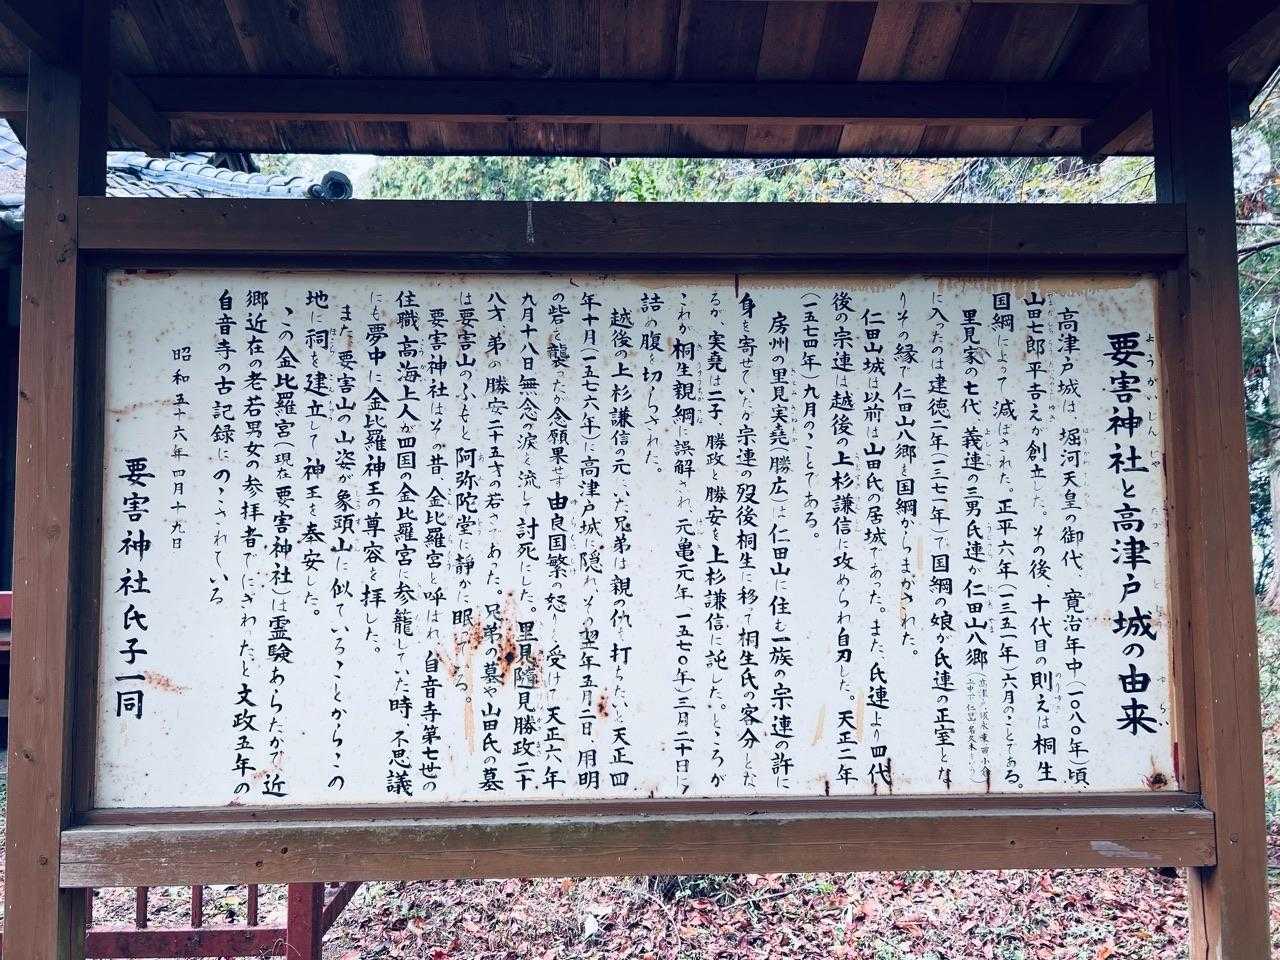 要害神社と高津戸城の由来
ようがいしんじゃ たかつど ゆらい
高津戸城は、堀河天皇の御代、寛治年中(一〇八〇年)頃、
山田七郎平吉之が創立した。その後、十代目の則之は桐生
国綱によって滅ぼされた。正平六年(一三五一年)六月のことである。
里見家の七代、義連の三男氏連が仁田山八郷
に入ったのは建徳二年(一三七一年)で国綱の娘が氏連の正室とな
りその縁で仁田山八郷を国綱からまかされた。
仁田山城は以前は山田氏の居城であった。また、氏連より四代
後の宗連は越後の上杉謙信に攻められ自刃した。天正二年
(一五七四年)九月のことである。
房州の里見実堯(勝広)は仁田山に住む一族の宗連の許に
身を寄せていたが宗連の歿後桐生に移って桐生氏の客分とな
るが、実堯は二子、勝政と勝安を上杉謙信に託した。ところが
これが桐生親綱に誤解され、元亀元年(一五七〇年)三月二十日に
詰め腹を切らされた。
越後の上杉謙信の元にいた兄弟は親の仇を打ちたいと天正四
年十月(一五七六年)に高津戸城に隠れ、その翌年五月二日、用明
の砦を襲ったが念願果せず由良国繁の怒りを受けて天正六年
九月十八日無念の涙を流して討死にした。里見随見勝政二十
八才、弟の勝安二十五才の若さであった。兄弟の墓や山田氏の墓
は要害山のふもと阿弥陀堂に静かに眠っている。
要害神社はその昔、金比羅宮と呼ばれ、自音寺第七世の
住職、高海上人が四国の金比羅宮に参籠していた時、不思議
にも夢中に金比羅神王の尊容を拝した。
また、要害山の山姿が象頭山に似ていることからこの
地に祠を建立して神王を奉安した。
この金比羅宮(現在要害神社)は霊験あらたかで近
郷近在の老若男女の参拝者でにぎわったと文政五年の
自音寺の古記録にのこされている
昭和五十六年四月十九日
要害神社氏子一同